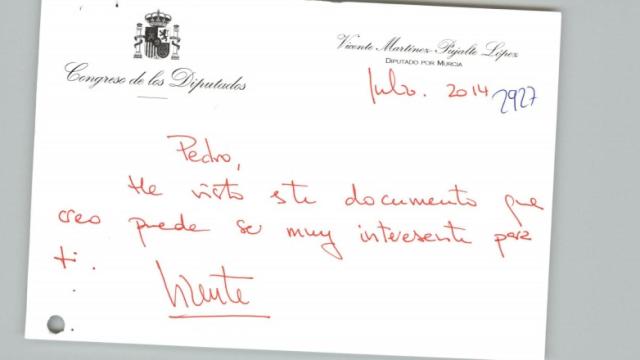 Congreso de los Diputados
Vicente Martínez-Pujalte López
DIPUTADO POR MURCIA
Julio. 2014
2927
Pedro,
He visto este documento que
creo puede ser muy interesante para
ti.
Vicente